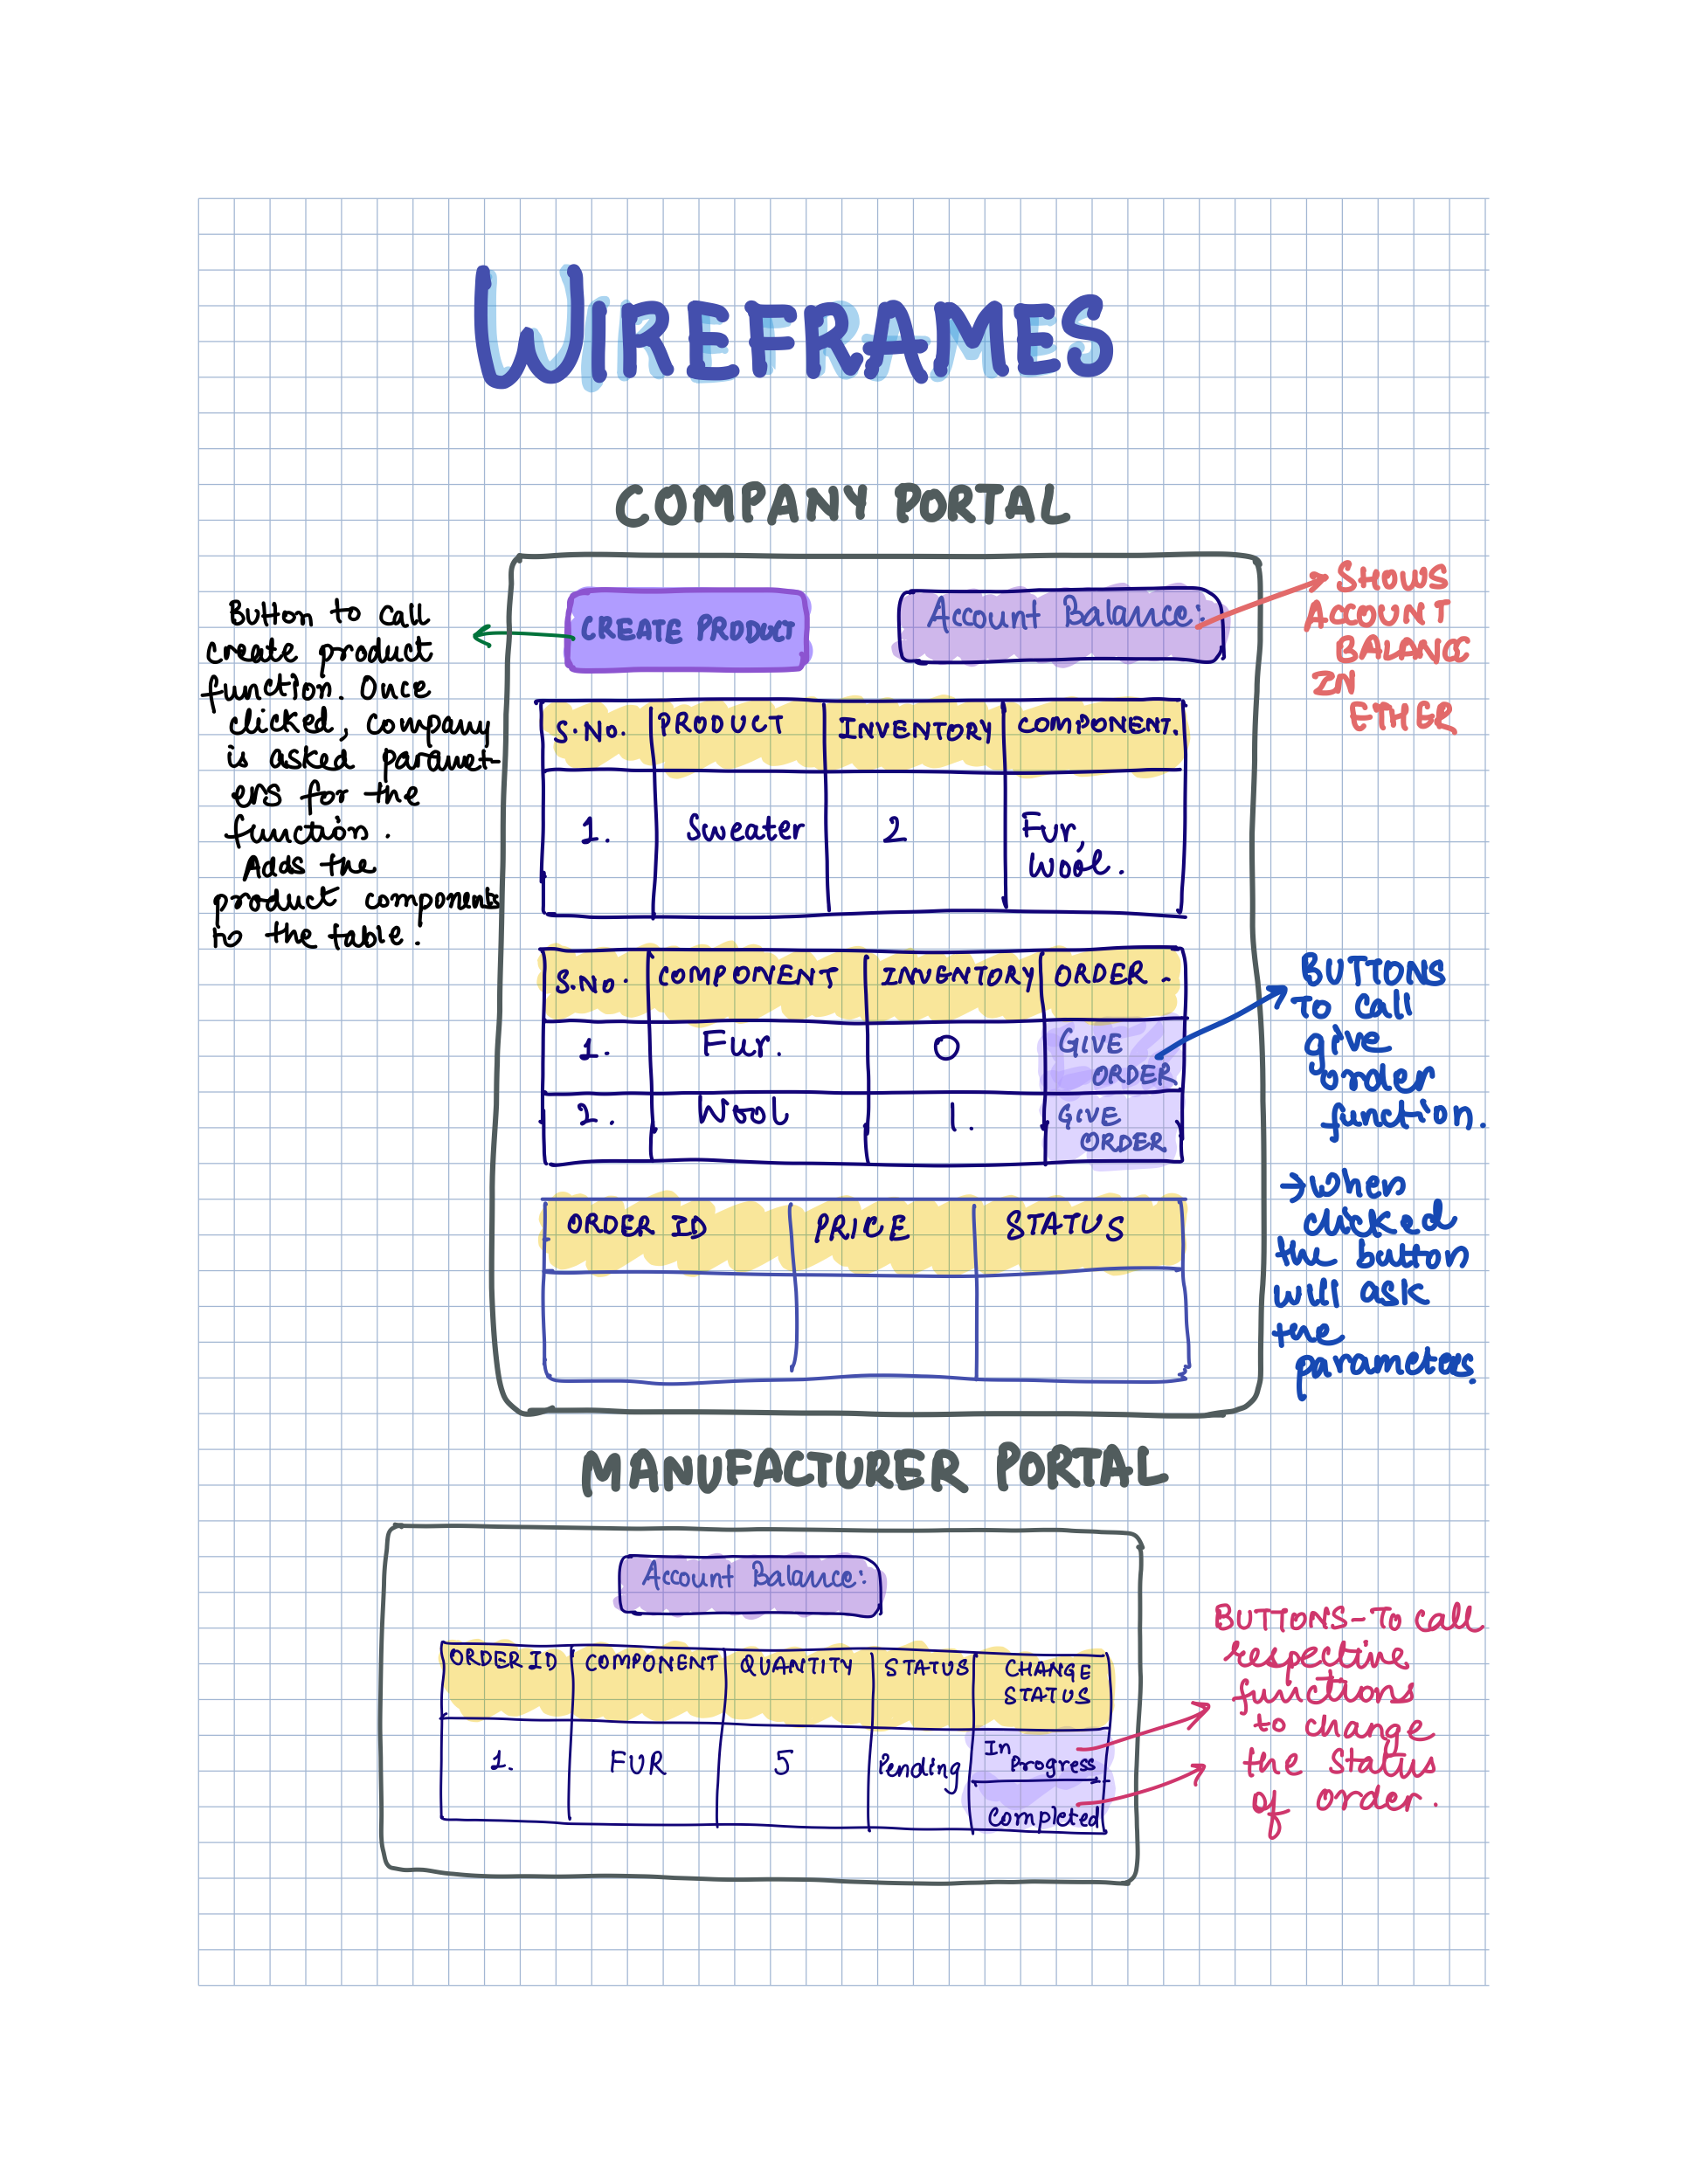 WIREFRAMES
COMPANY PORTAL
CREATE PRODUCT
Account Balance:
Button to call
create product
function. Once
clicked, company
is asked paramet-
ers for the
function.
Adds the
product components
to the table.
SHOWS
ACCOUNT
BALANCE
IN
ETHER
S.No. PRODUCT INVENTORY COMPONENT.
1. Sweater 2 Fur,
Wool.
S.No. COMPONENT INVENTORY ORDER -
1. Fur. 0 GIVE
ORDER
2. Wool 1. GIVE
ORDER
BUTTONS
TO call
give
order
function.
→ When
clicked
the button
will ask
the
parameters.
ORDER ID PRICE STATUS
MANUFACTURER PORTAL
Account Balance:
ORDER ID COMPONENT QUANTITY STATUS CHANGE
STATUS
1. FUR 5 Pending In
Progress
Completed
BUTTONS - TO call
respective
functions
to change
the status
of order.